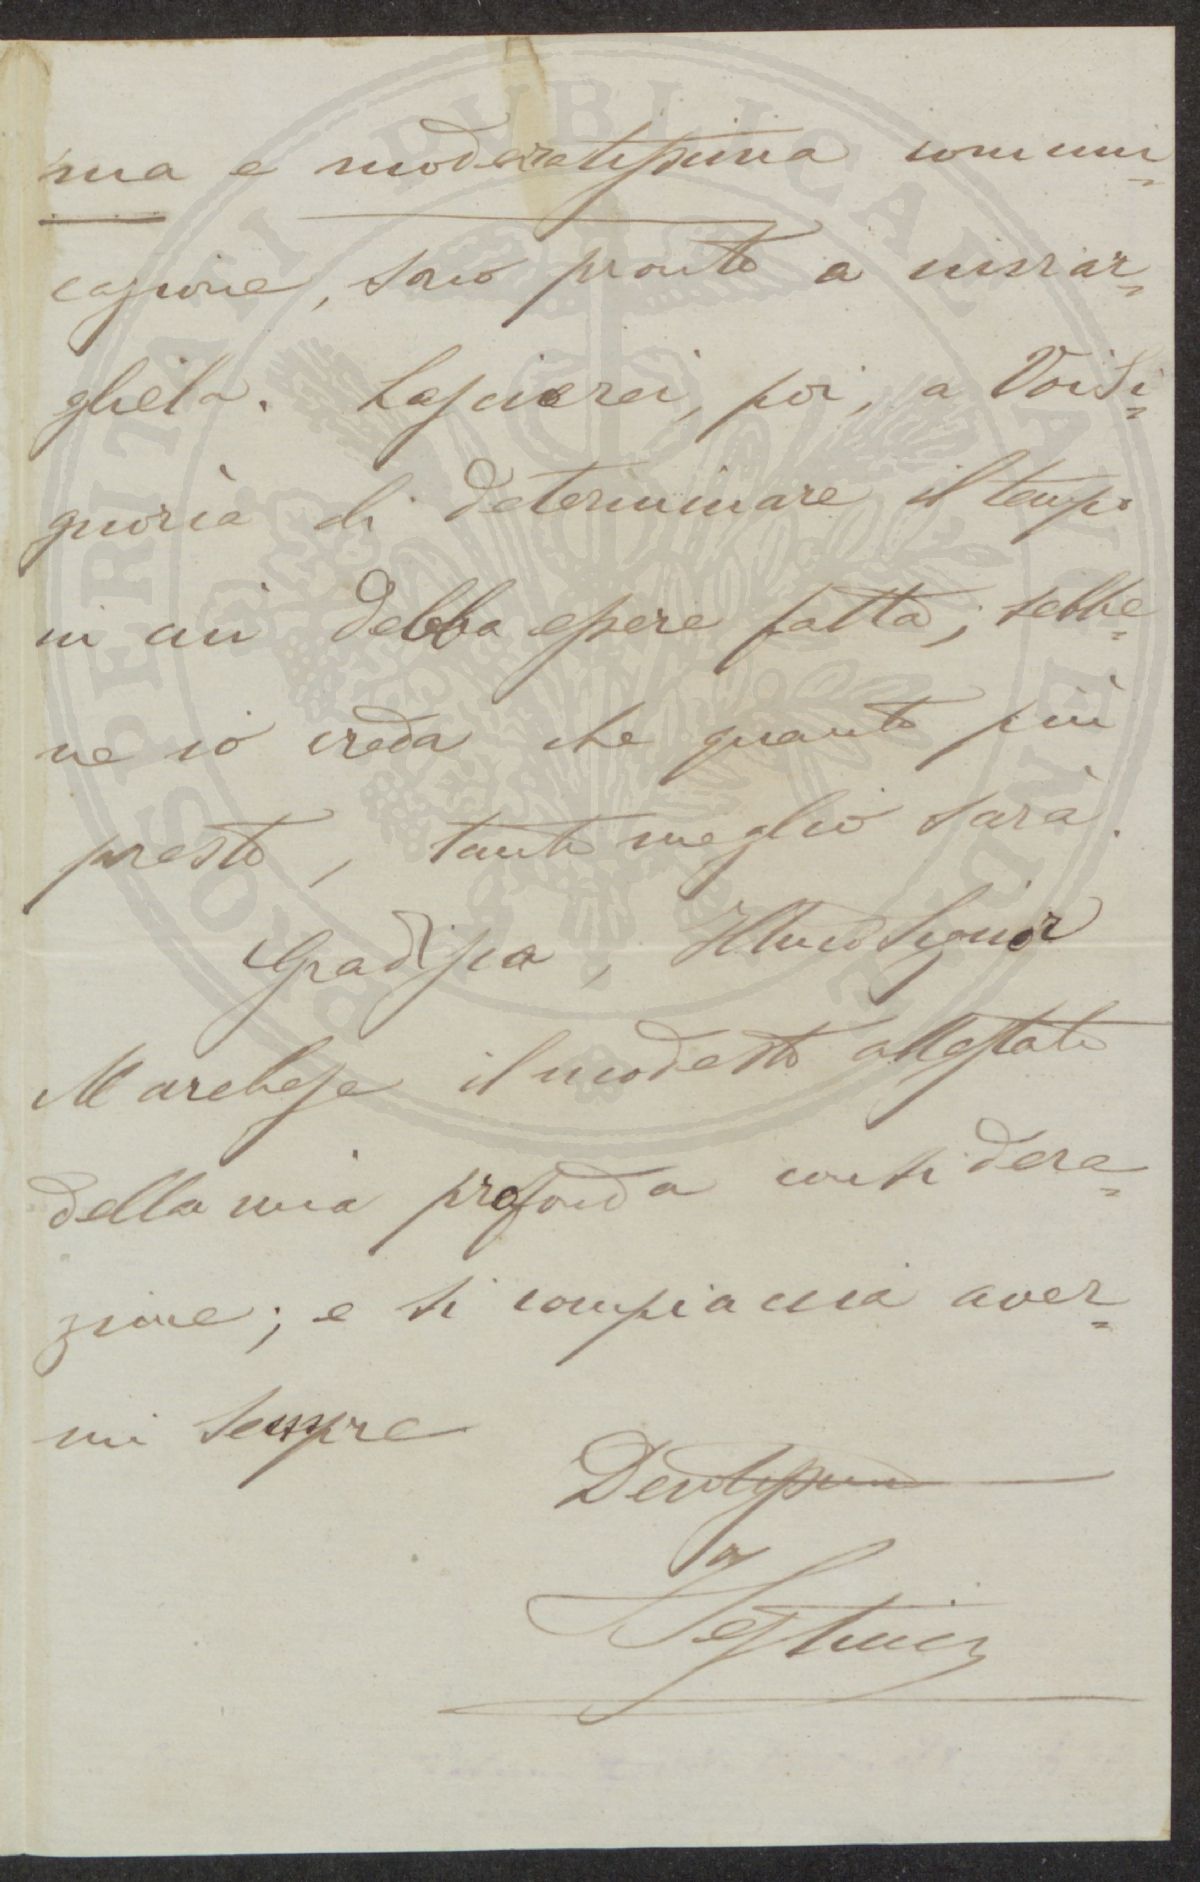 ma e moderatissima comuni=
cazione, sono pronto a inviar=
gliela. Lascierei, poi, a VoiSi=
gnoria di determinare il tempo
in cui debba essere fatta; sebbe=
ne io creda che quanto più
presto, tanto meglio sarà.
Gradisca, IllmoSignor
Marchese il modesto attestato
della mia profonda considera=
zione; e si compiaccia aver=
mi sempre
Devotissimo
PROSPERITATI PUBLICAE AUGENDAE